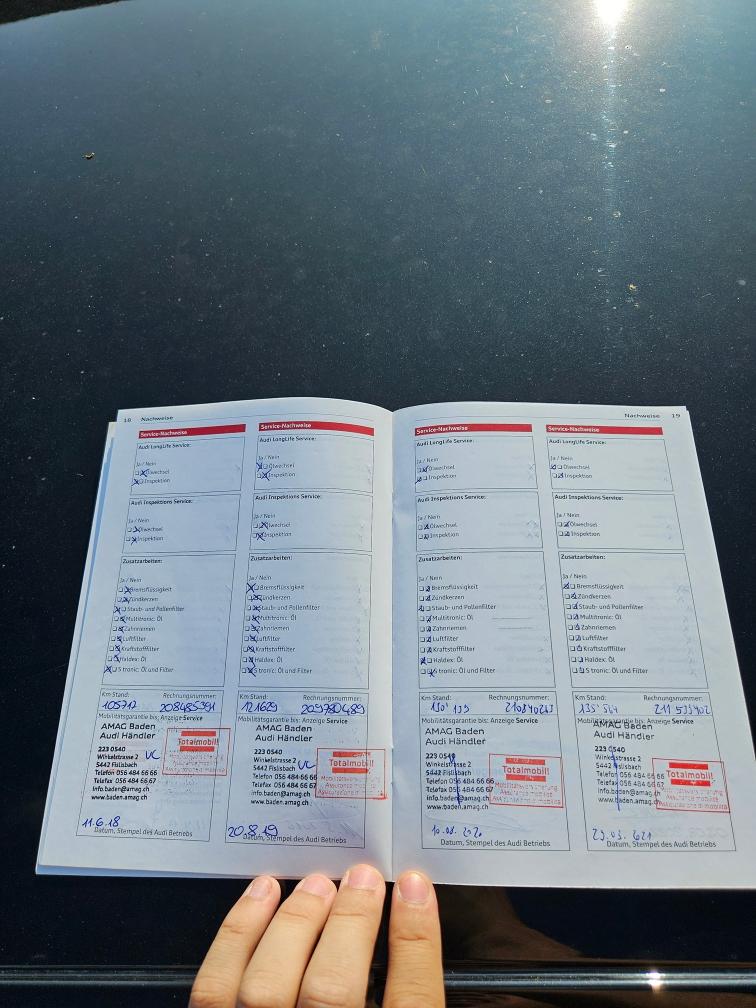 18 Nachweise
Service-Nachweise
Audi LongLife Service:
Ja / Nein
Ölwechsel
Inspektion
Audi Inspektions Service:
Ja / Nein
Ölwechsel
Inspektion
Zusatzarbeiten:
Ja / Nein
Bremsflüssigkeit
Zündkerzen
Staub- und Pollenfilter
Multitronic: Öl
Zahnriemen
Luftfilter
Kraftstofffilter
Haldex: Öl
S tronic: Öl und Filter
Km Stand: Rechnungsnummer:
105712
Mobilitätsgarantie bis: Anzeige Service
AMAG Baden
Audi Händler
223 0540
Winkelstrasse 2
5442 Fislisbach
Telefon 056 484 66 66
Telefax 056 484 66 67
info.baden@amag.ch
www.baden.amag.ch
Totalmobil!
11.6.18
Datum, Stempel des Audi Betriebs
Service-Nachweise
Audi LongLife Service:
Ja / Nein
Ölwechsel
Inspektion
Audi Inspektions Service:
Ja / Nein
Ölwechsel
Inspektion
Zusatzarbeiten:
Ja / Nein
Bremsflüssigkeit
Zündkerzen
Staub- und Pollenfilter
Multitronic: Öl
Zahnriemen
Luftfilter
Kraftstofffilter
Haldex: Öl
S tronic: Öl und Filter
Km Stand: Rechnungsnummer:
121629 209780489
Mobilitätsgarantie bis: Anzeige Service
AMAG Baden
Audi Händler
223 0540
Winkelstrasse 2
5442 Fislisbach
Telefon 056 484 66 66
Telefax 056 484 66 67
info.baden@amag.ch
www.baden.amag.ch
Totalmobil!
20.8.19
Datum, Stempel des Audi Betriebs
Nachweise 19
Service-Nachweise
Audi LongLife Service:
Ja / Nein
Ölwechsel
Inspektion
Audi Inspektions Service:
Ja / Nein
Ölwechsel
Inspektion
Zusatzarbeiten:
Ja / Nein
Bremsflüssigkeit
Zündkerzen
Staub- und Pollenfilter
Multitronic: Öl
Zahnriemen
Luftfilter
Kraftstofffilter
Haldex: Öl
S tronic: Öl und Filter
Km Stand: Rechnungsnummer:
Mobilitätsgarantie bis: Anzeige Service
AMAG Baden
Audi Händler
223 0540
Winkelstrasse 2
5442 Fislisbach
Telefon 056 484 66 66
Telefax 056 484 66 67
info.baden@amag.ch
www.baden.amag.ch
Totalmobil!
10.08.2020
Datum, Stempel des Audi Betriebs
Service-Nachweise
Audi LongLife Service:
Ja / Nein
Ölwechsel
Inspektion
Audi Inspektions Service:
Ja / Nein
Ölwechsel
Inspektion
Zusatzarbeiten:
Ja / Nein
Bremsflüssigkeit
Zündkerzen
Staub- und Pollenfilter
Multitronic: Öl
Zahnriemen
Luftfilter
Kraftstofffilter
Haldex: Öl
S tronic: Öl und Filter
Km Stand: Rechnungsnummer:
Mobilitätsgarantie bis: Anzeige Service
AMAG Baden
Audi Händler
223 0540
Winkelstrasse 2
5442 Fislisbach
Telefon 056 484 66 66
Telefax 056 484 66 67
info.baden@amag.ch
www.baden.amag.ch
Totalmobil!
Datum, Stempel des Audi Betriebs